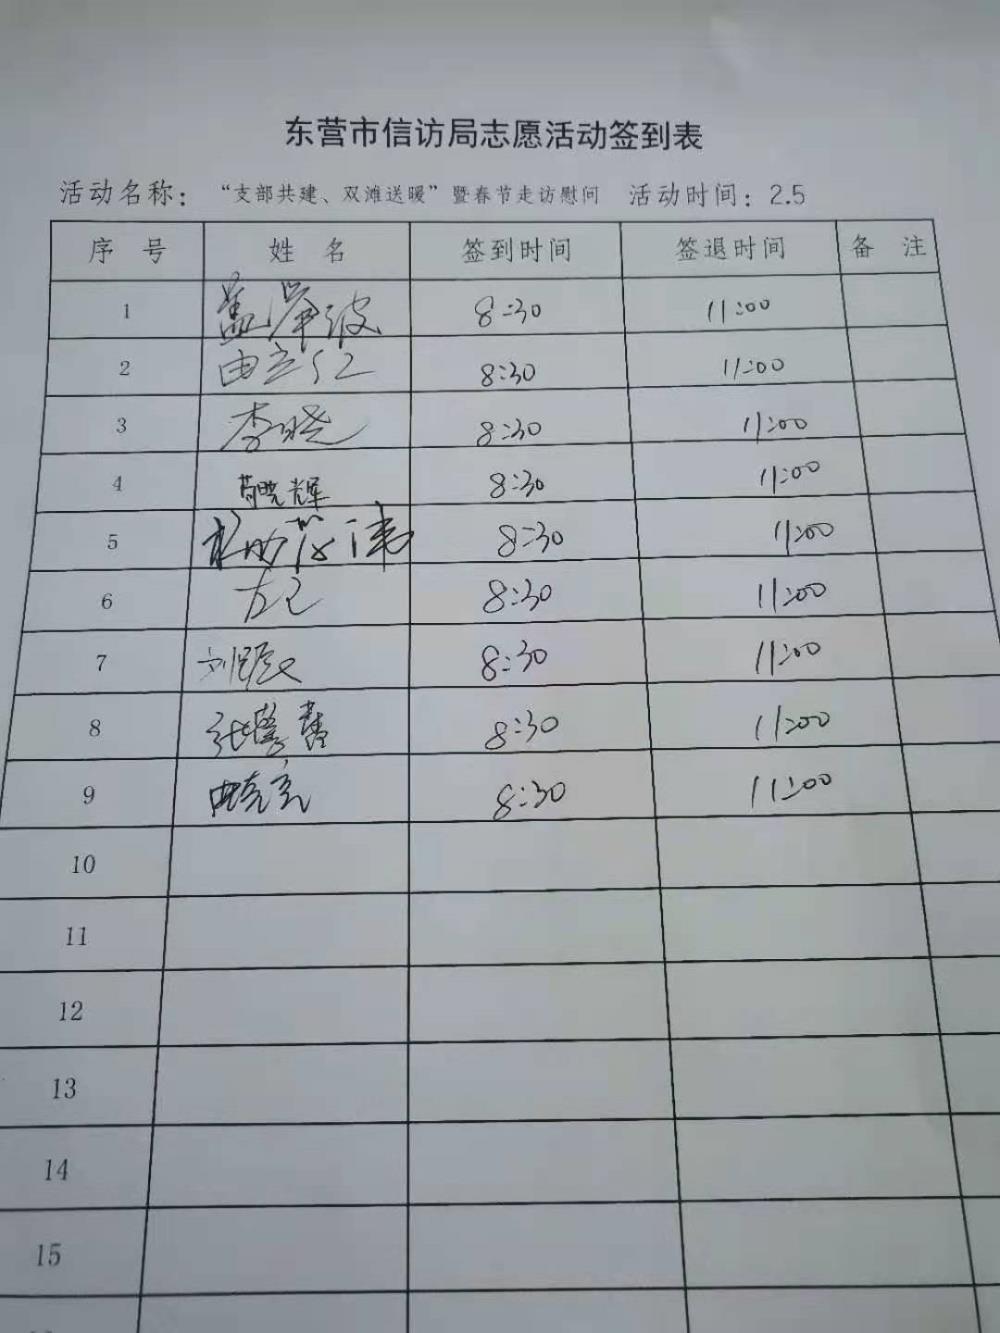 东营市信访局志愿活动签到表
活动名称：“支部共建、双滩送暖”暨春节走访慰问 活动时间：2.5
序 号 姓 名 签到时间 签退时间 备 注
1 8:30 11:00
2 由立红 8:30 11:00
3 李晓 8:30 11:00
4 晓辉 8:30 11:00
5 8:30 11:00
6 8:30 11:00
7 刘 8:30 11:00
8 张 8:30 11:00
9 8:30 11:00
10
11
12
13
14
15